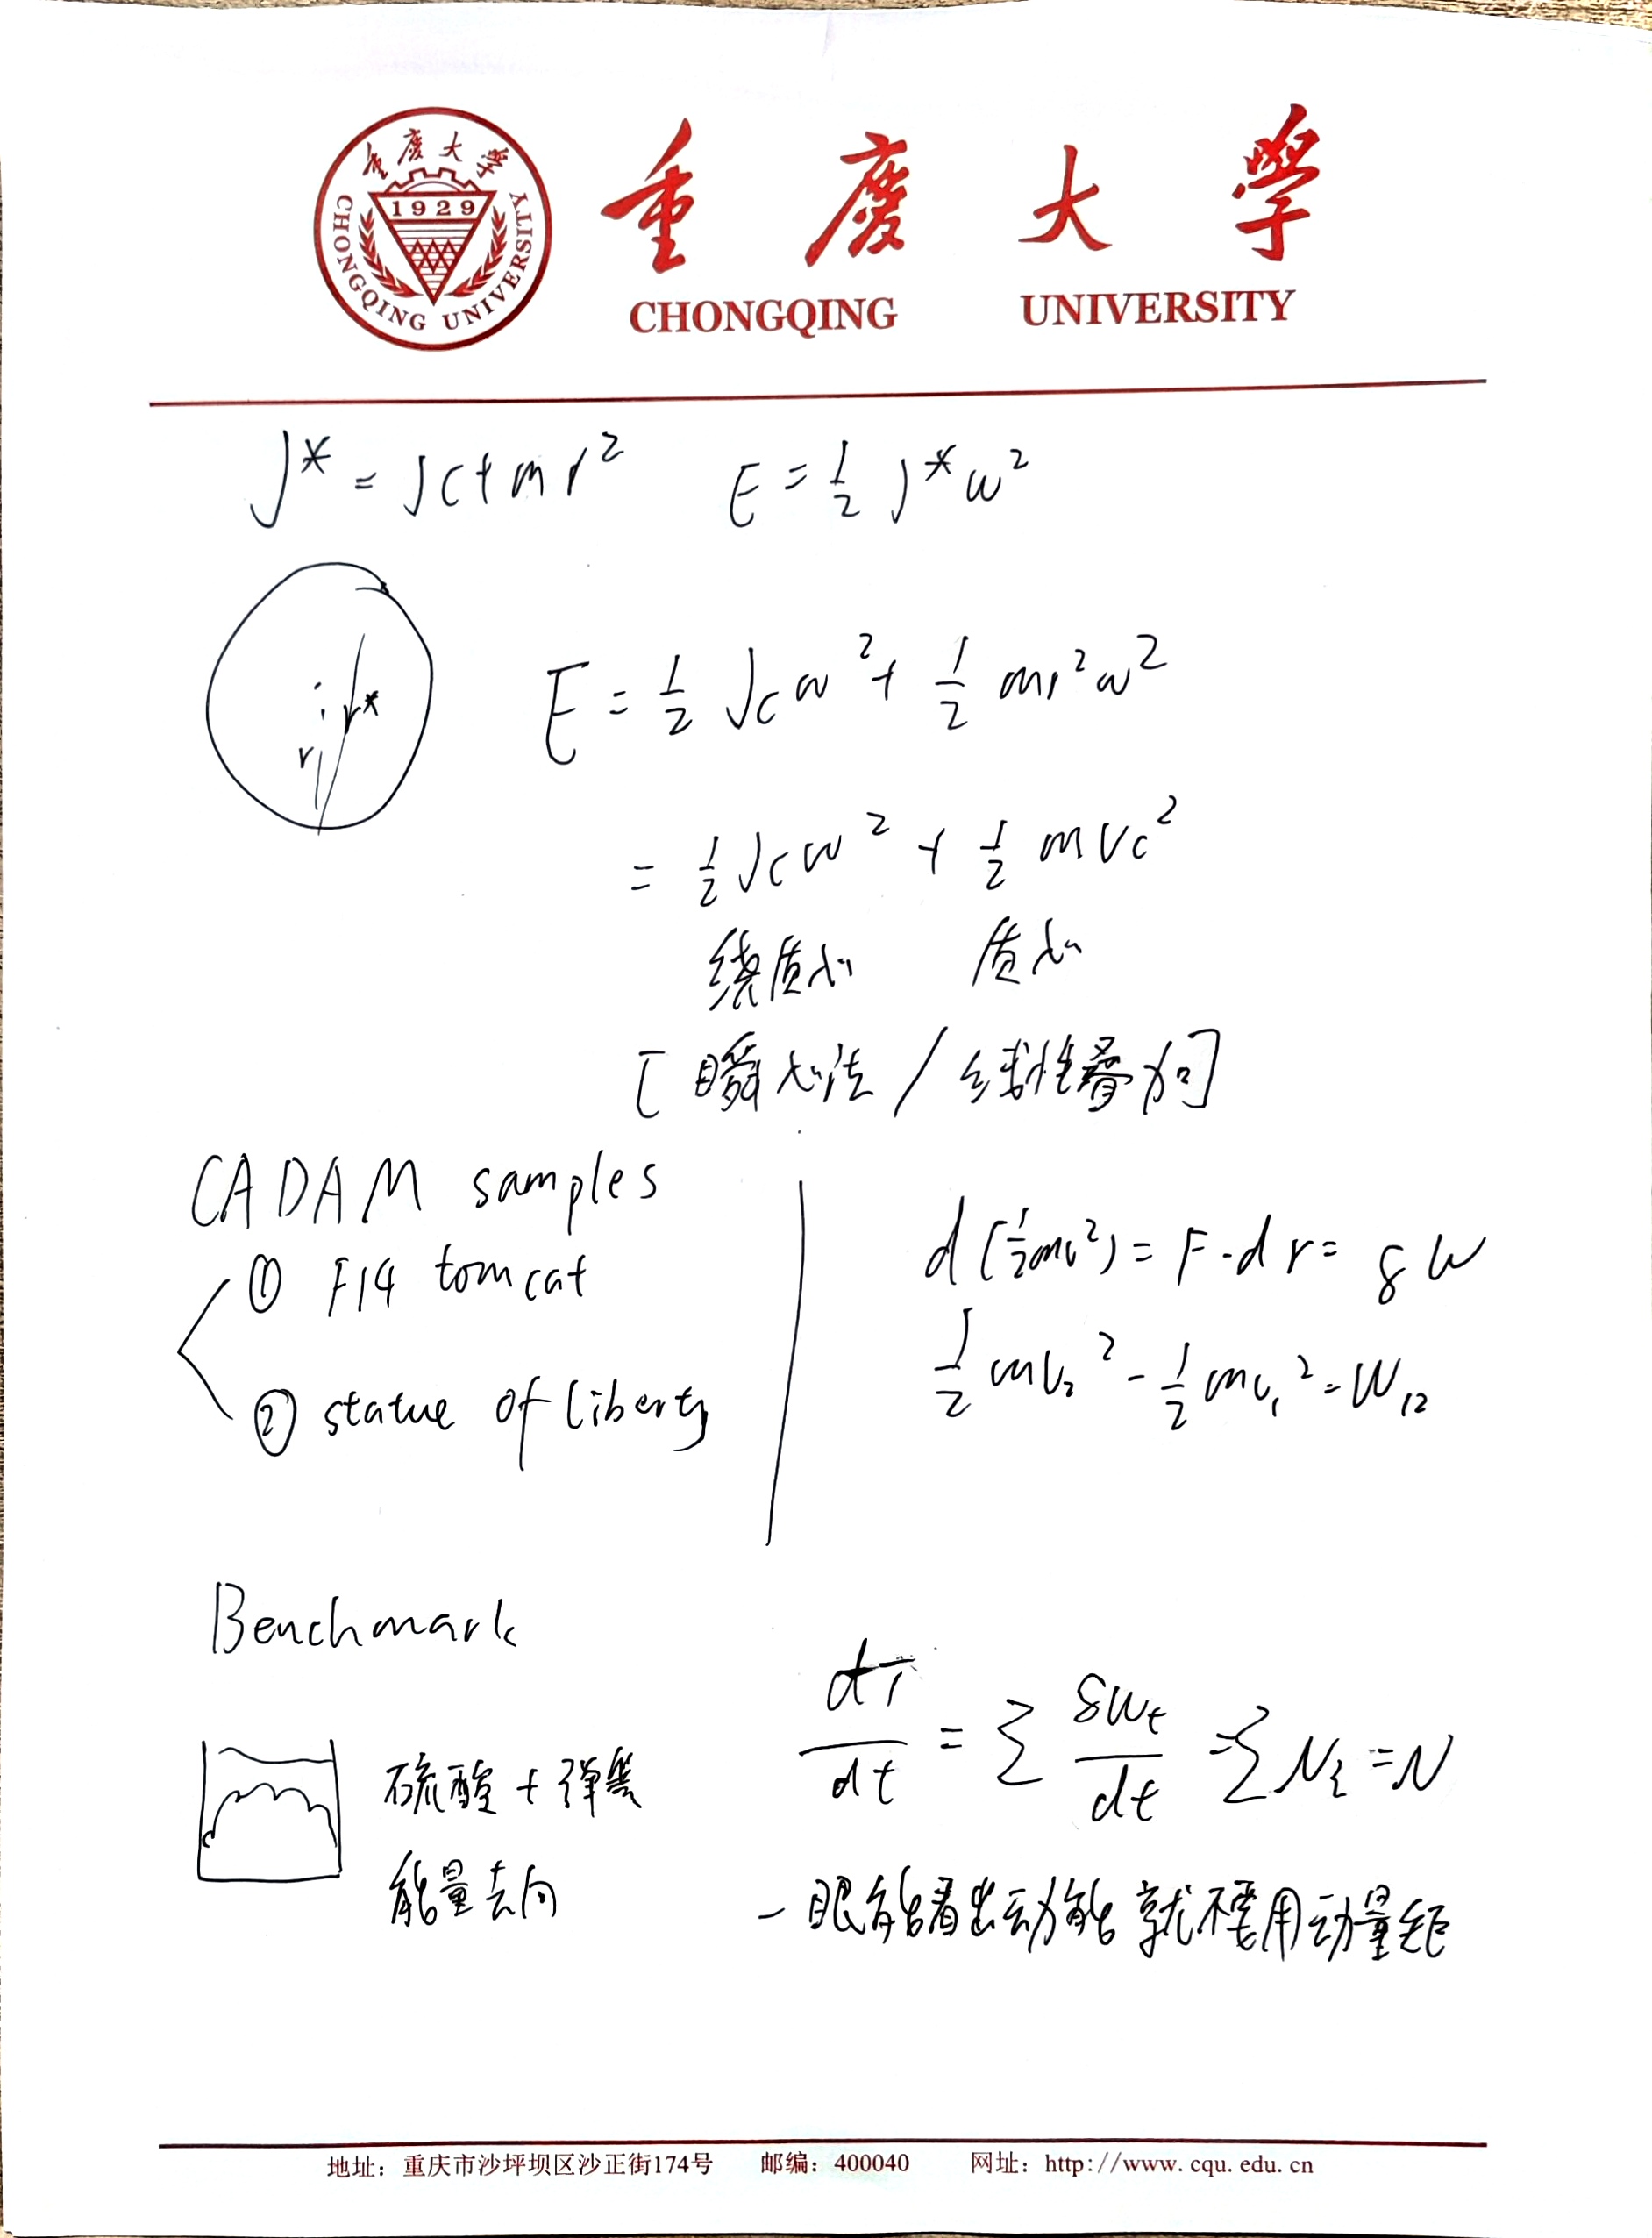 重慶大學
1929
CHONGQING UNIVERSITY
重慶大學
CHONGQING UNIVERSITY
J* = Jc + mr² E = ½ J*ω²
r r*
E = ½ Jcω² + ½ mr²ω²
= ½ Jcω² + ½ mVc²
绕质心 质心
[瞬心法 / 线性叠加]
CADAM samples
① F14 tomcat
② statue of liberty
d(½mv²) = F·dr = δW
½mv₂² - ½mv₁² = W₁₂
Benchmark
硫酸 + 弹簧
能量去向
dT/dt = Σ δWt/dt = Σ Ni = N
一眼能看出动能就不要用动量矩
地址：重庆市沙坪坝区沙正街174号 邮编：400040 网址：http://www.cqu.edu.cn